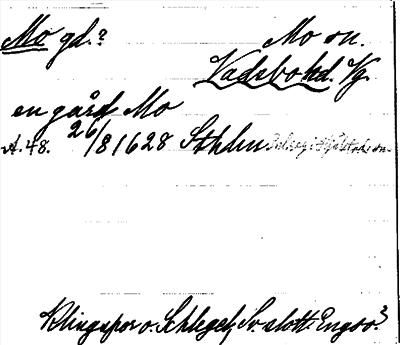 Mo gd.? Mo sn.
Vadsbo hd. Vg.
en gård Mo
A. 48. 26/8 1628 Sthlm
Klingspor o. Schlegel, Sv. slott: Engsö?